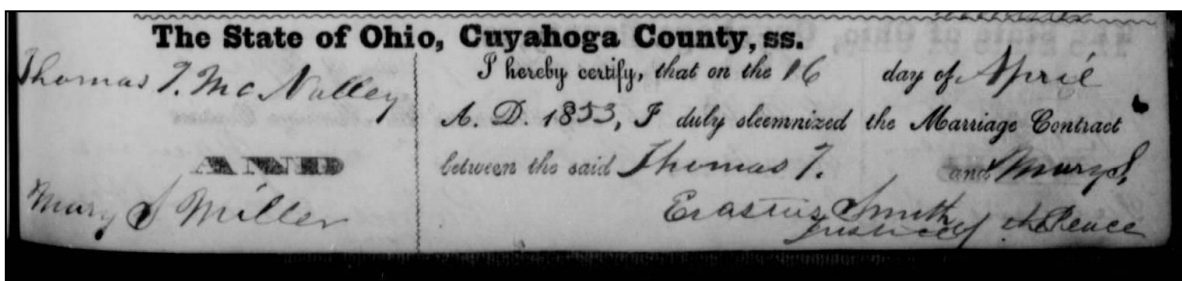 The State of Ohio, Cuyahoga County, ss.
Thomas T. McNalley
I hereby certify, that on the 16 day of April
A. D. 1853, I duly slemnized the Marriage Contract
AND
between the said Thomas T. and Mary S.
Mary S Miller
Erastus Smith
Justice of the Peace